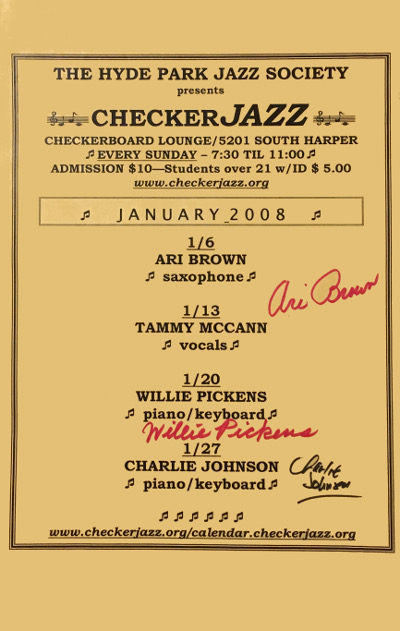 THE HYDE PARK JAZZ SOCIETY
presents
CHECKERJAZZ
CHECKERBOARD LOUNGE/5201 SOUTH HARPER
EVERY SUNDAY – 7:30 TIL 11:00
ADMISSION $10—Students over 21 w/ID $ 5.00
www.checkerjazz.org
JANUARY 2008
1/6
ARI BROWN
saxophone
Ari Brown
1/13
TAMMY MCCANN
vocals
1/20
WILLIE PICKENS
piano/keyboard
Willie Pickens
1/27
CHARLIE JOHNSON
piano/keyboard
Charlie
Johnson
www.checkerjazz.org/calendar.checkerjazz.org